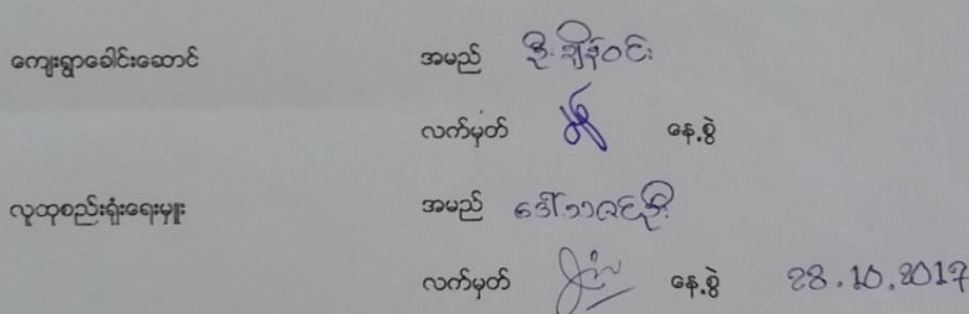 ကျေးရွာခေါင်းဆောင် အမည် ဦးချိန်ဝင်း
လက်မှတ် နေ့စွဲ
လူထုစည်းရုံးရေးမှူး အမည် ဒေါ်သဇင်ဦး
လက်မှတ် နေ့စွဲ 28.10.2017